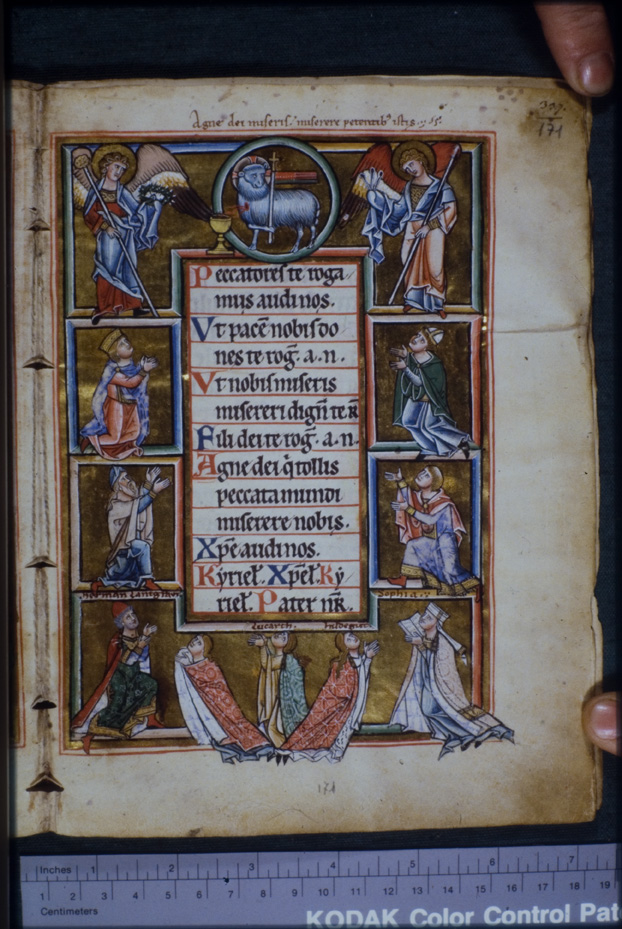 Agne dei miseris. miserere petentib⁹ istis.
171
Peccatores te roga
mus audi nos.
Vt pacē nobis do
nes te rog̃. a. n.
Vt nobis miseris
misereri dign̄ te R̄
Fili dei te rog̃. a. n.
Agne dei q̇ tollis
peccata mundi
miserere nobis.
Xp̄e audi nos.
Kyriel̵. Xp̄el̵. Ky
riel̵. Pater nr̄.
Sophia.
171
Inches 1 2 3 4 5 6 7
1 2 3 4 5 6 7 8 9 10 11 12 13 14 15 16 17 18 19
Centimeters
KODAK Color Control Pat